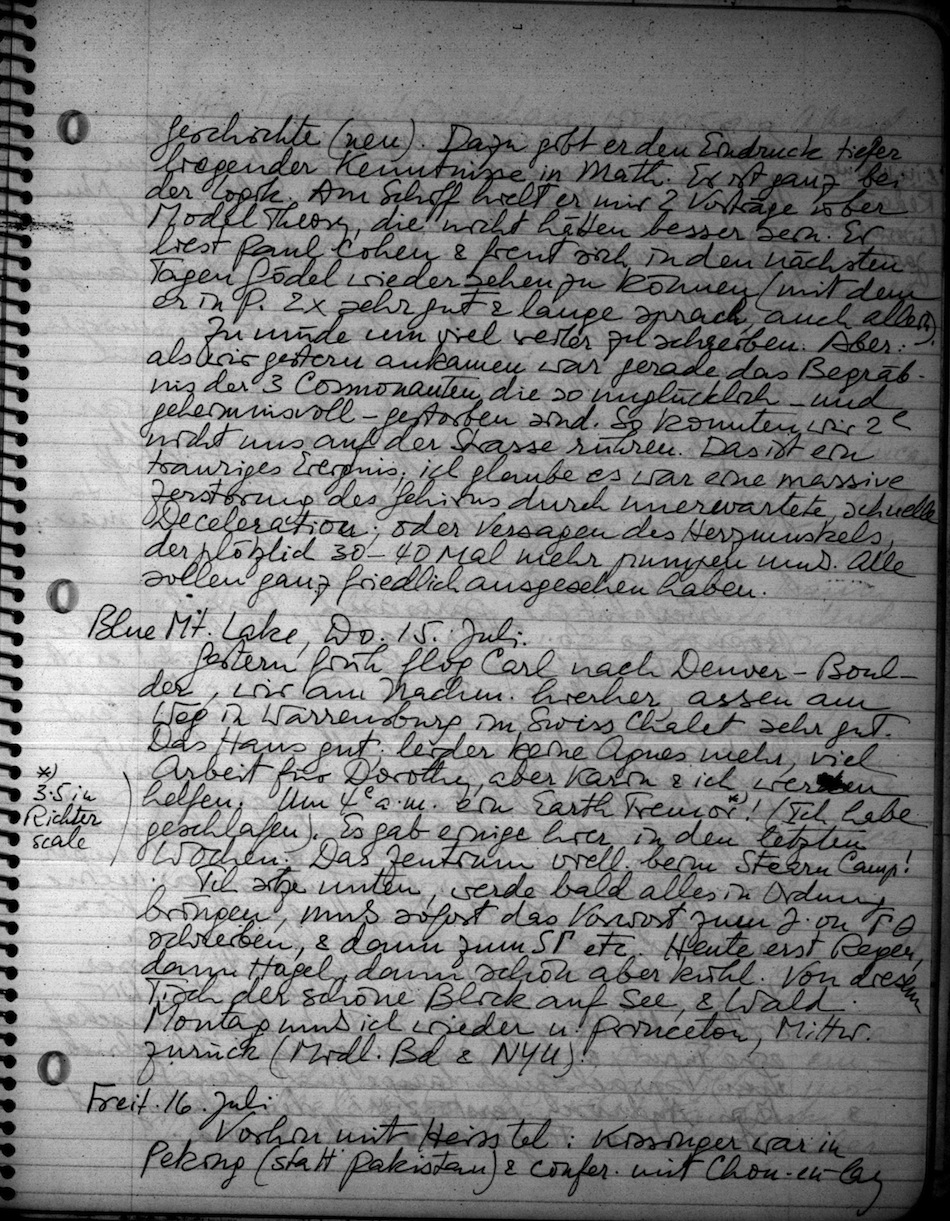 Geschichte (neu). Dazu gibt er den Eindruck tiefer
liegender Kenntnisse in Math. Er ist ganz bei
der Logik. Am Schiff hielt er mir 2 Vorträge über
Model Theory, die nicht hätten besser sein. Er
liest Paul Cohen & freut sich in den nächsten
Tagen Gödel wieder sehen zu können (mit dem
er in P. 2x sehr gut & lange sprach, auch allein).
Zu müde um viel weiter zu schreiben. Aber:
als wir gestern ankamen war gerade das Begräb-
nis der 3 Cosmonauten, die so unglücklich – und
geheimnisvoll – gestorben sind. So konnten wir 2
nicht uns auf der Strasse rühren. Das ist ein
trauriges Ereignis; ich glaube es war eine massive
Zerstörung des Gehirns durch unerwartete, schnelle
Deceleration; oder Versagen des Herzmuskels,
der plötzlich 30–40 Mal mehr pumpen muß. Alle
sollen ganz friedlich ausgesehen haben.
Blue Mt. Lake, Do. 15. Juli.
Gestern früh flog Carl nach Denver – Boul-
der, wir am Nachm. hierher, assen am
Weg in Warrensburg im Swiss Chalet sehr gut.
Das Haus gut; leider keine Agnes mehr, viel
Arbeit für Dorothy, aber Karin & ich werden
helfen. Um 4 a.m. ein Earth Tremor*)! (Ich habe
*)
3.5 in
Richter
scale
geschlafen). Es gab einige hier in den letzten
Wochen. Das Zentrum viell. beim Stearn Camp!
Ich sitze unten, werde bald alles in Ordnung
bringen, muß sofort das Vorwort zum J. on
schreiben, & dann zum etc. Heute erst Regen,
dann Hagel, dann schön aber kühl. Von diesem
Tisch der schöne Blick auf See & Wald.
Montag muß ich wieder n. Princeton, Mittw.
zurück (Mrdl. Bd & NYU).
Freit. 16. Juli
Vorhin mit Heiss tel: Kissinger war in
Peking (statt Pakistan) & confer. mit Chou-en-lay